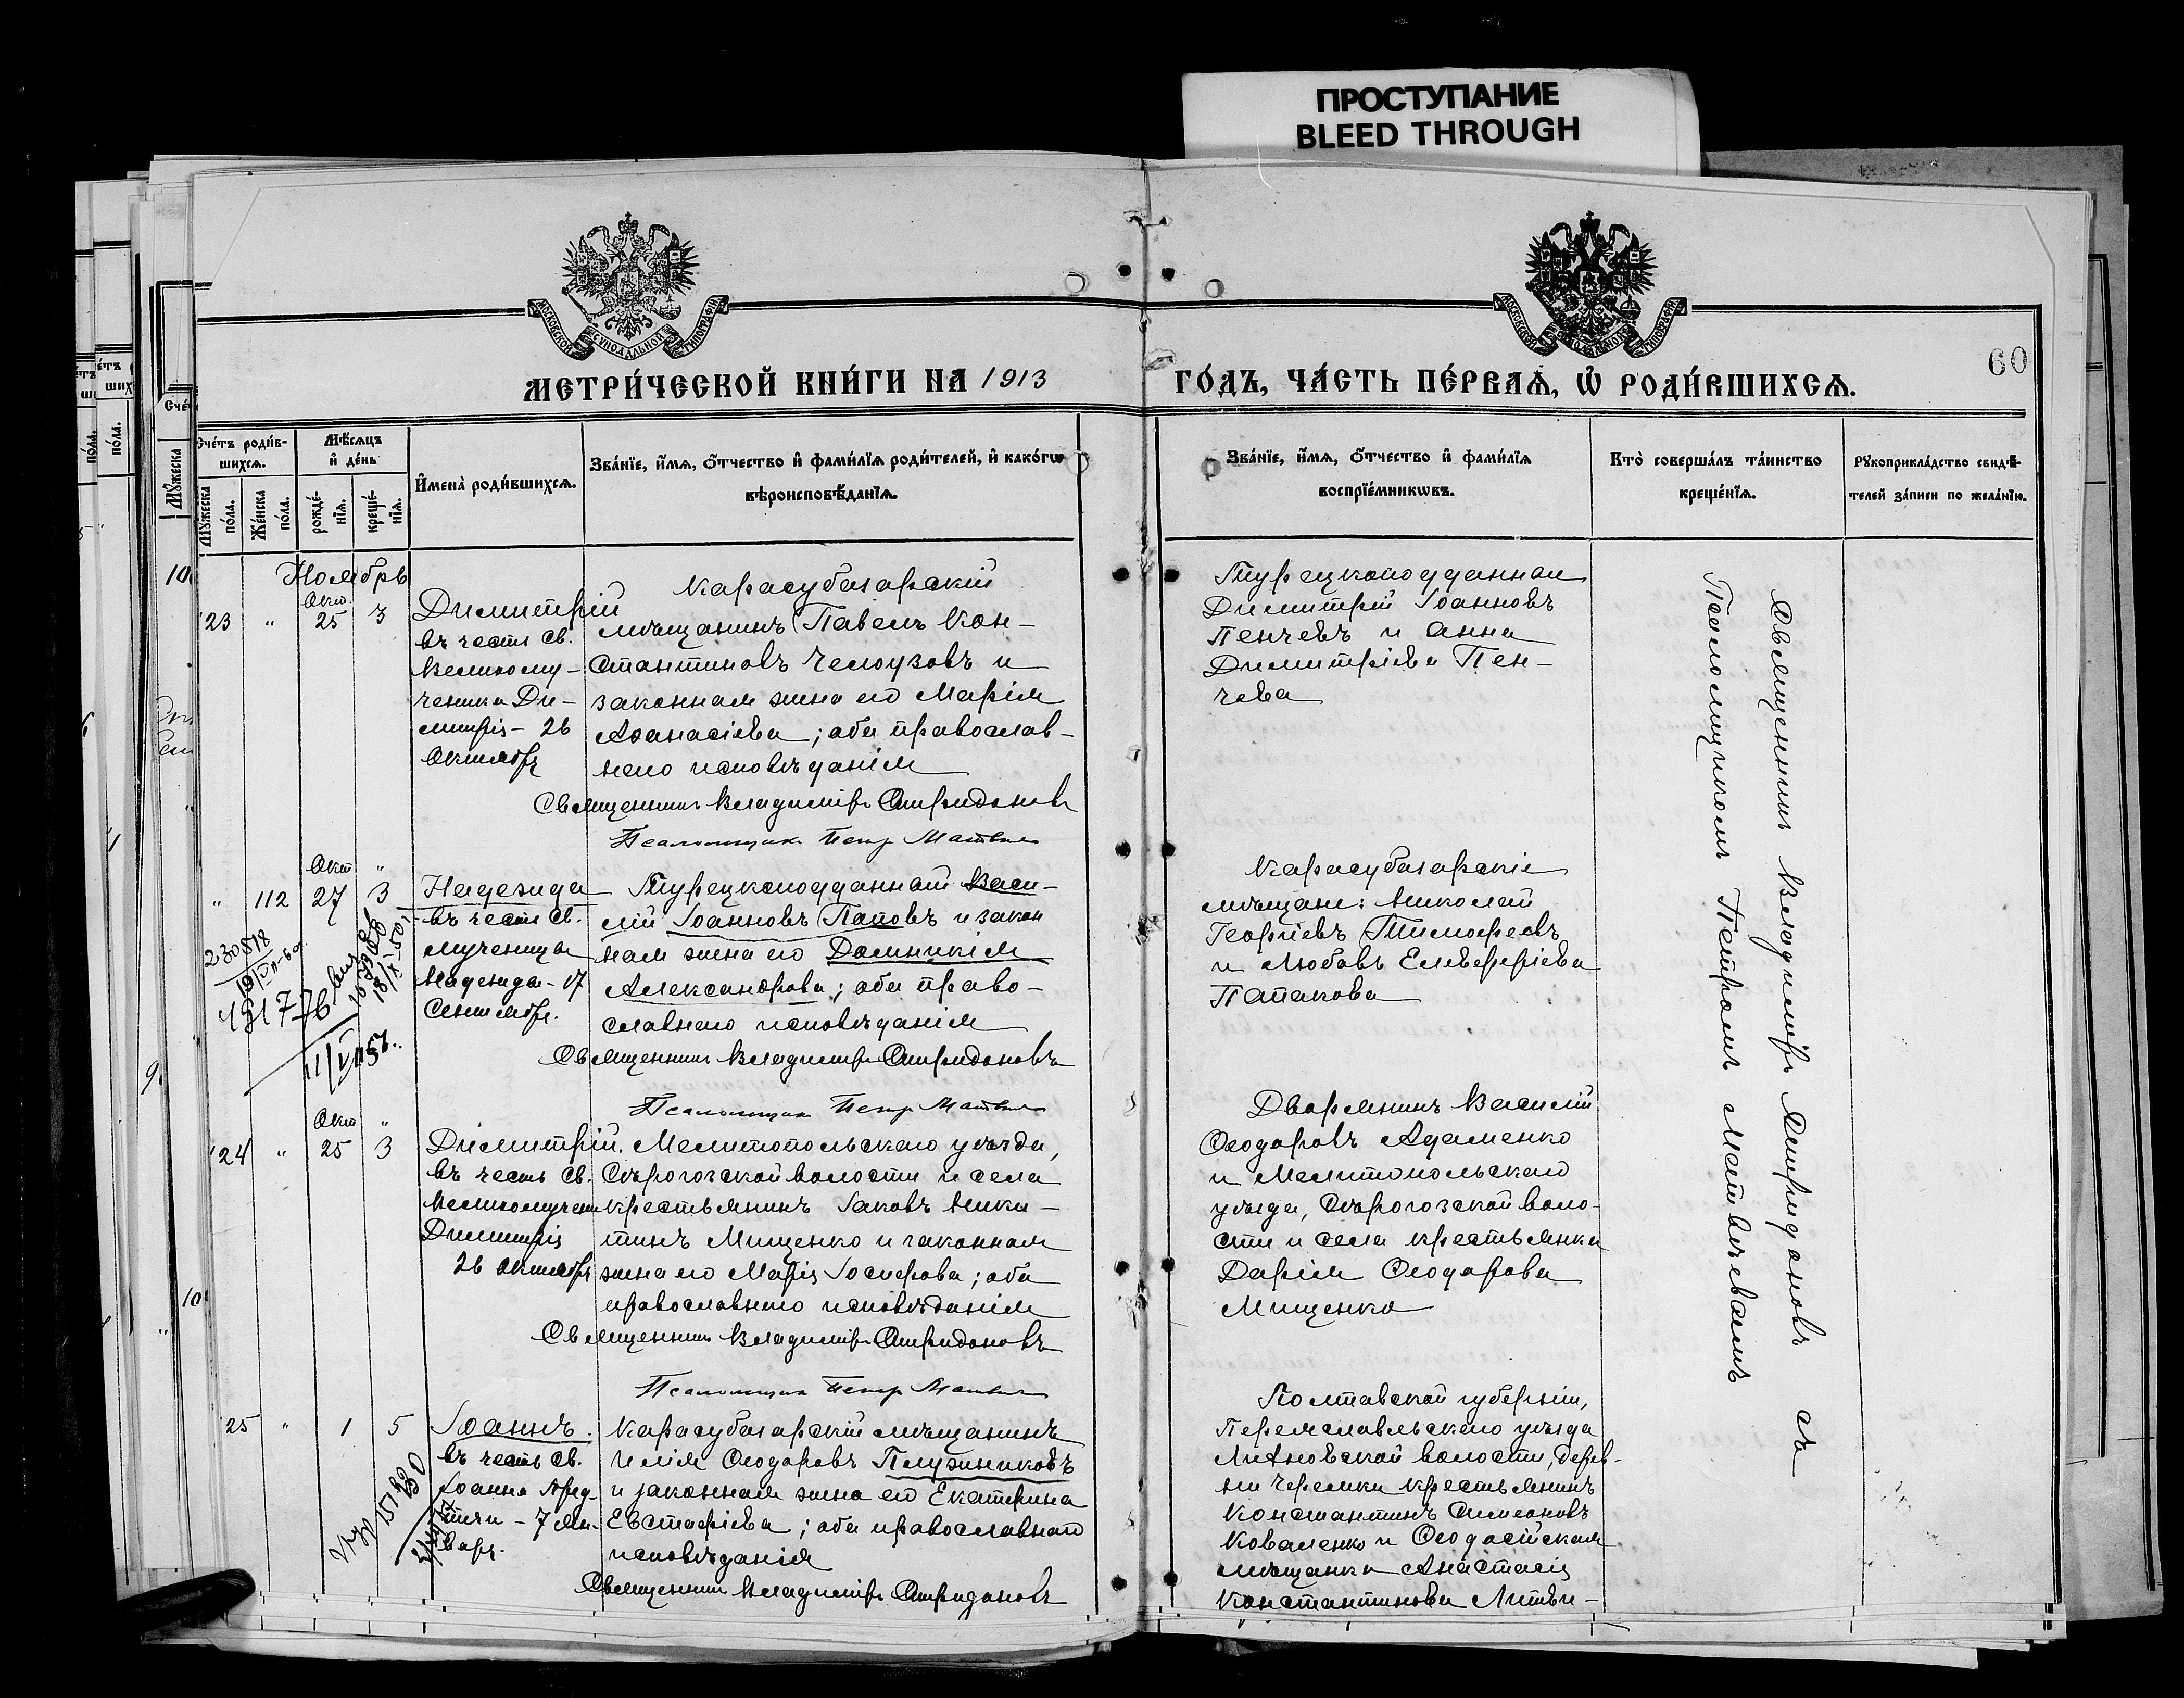 ПРОСТУПАНИЕ
BLEED THROUGH
МОСКОВСКОЙ СѴНОДАЛЬНОЙ ТИПОГРАФІИ
60
МЕТРИ́ЧЕСКОЙ КНИ́ГИ НА 1913
ГО́ДЪ, ЧА́СТЬ ПЕ́РВАЯ, Ѽ РОДИ́ВШИХСЯ.
Счéтъ роди́в-
шихся.
Мѣ́сяцъ
и҆ де́нь
Мꙋ́жеска
по́ла.
Же́нска
по́ла.
рожде́-
нїѧ.
креще́-
нїѧ.
И҆мена̀ роди́вшихся.
Зва́нїе, и҆́мѧ, ѻ҆́тчество и҆ фами́лїѧ роди́телей, и҆ како́гѡ
вѣроисповѣ́данїѧ.
Зва́нїе, и҆́мѧ, ѻ҆́тчество и҆ фами́лїѧ
воспрїе́мникѡвъ.
Кто̀ соверша́лъ та́инство
креще́нїѧ.
Рꙋкоприкла́дство свидѣ́-
телей за́писи по жела́нїю.
Ноябрь
Окт.
123 " 25 3
Димитрій
въ честь св.
Великому-
ченика Ди-
митрія - 26
Октября
Карасубазарскій
мѣщанинъ Павелъ Кон-
стантиновъ Челоузовъ и
законная жена его Марія
Аѳанасіева; оба православ-
наго исповѣданія
Священникъ Владиміръ Спиридоновъ
Псаломщикъ Петръ Матвѣевъ
Турецкоподданные
Димитрій Іоанновъ
Пенчевъ и Анна
Димитріева Пен-
чева
Священникъ Владиміръ Спиридоновъ съ
Псаломщикомъ Петромъ Матвѣевымъ
Окт "
" 112 27 3
230818
191776
Надежда
въ честь св.
мученицы
Надежды - 17
Сентября.
Турецкоподданный Васи-
лій Іоанновъ Паповъ и закон
ная жена его Домникія
Александрова; оба право-
славнаго исповѣданія
Священникъ Владиміръ Спиридоновъ
Псаломщикъ Петръ Матвѣевъ
Карасубазарскіе
мѣщане: Николай
Георгіевъ Тимофеевъ
и Любовь Елевферіева
Папакова
Окт "
124 " 25 3
Димитрій.
въ честь св.
Великомучени
Димитрія
26 Октября
Мелитопольскаго уѣзда,
Сѣрогозской волости и села
крестьянинъ Іаковъ Ники-
тинъ Мищенко и законная
жена его Марія Іосифова; оба
православнаго исповѣданія
Священникъ Владиміръ Спиридоновъ
Псаломщикъ Петръ Матвѣевъ
Дворянинъ Василій
Ѳеодоровъ Адаменко
и Мелитопольскаго
уѣзда, Сѣрогозской воло-
сти и села крестьянка
Дарія Ѳеодорова
Мищенко
125 " 1 5
Іоаннъ.
въ честь св.
Іоанна Пред-
течи - 7 Ян-
варя.
Карасубазарскій мѣщанинъ
Илія Ѳеодоровъ Плужниковъ
и законная жена его Екатерина
Евстафіева; оба православнаго
исповѣданія
Священникъ Владиміръ Спиридоновъ
Полтавской губерніи,
Переяславльскаго уѣзда
волости, дерев-
ни крестьянинъ
Константинъ Симеоновъ
Коваленко и Ѳеодосійская
мѣщанка Анастасія
Константинова Литви-